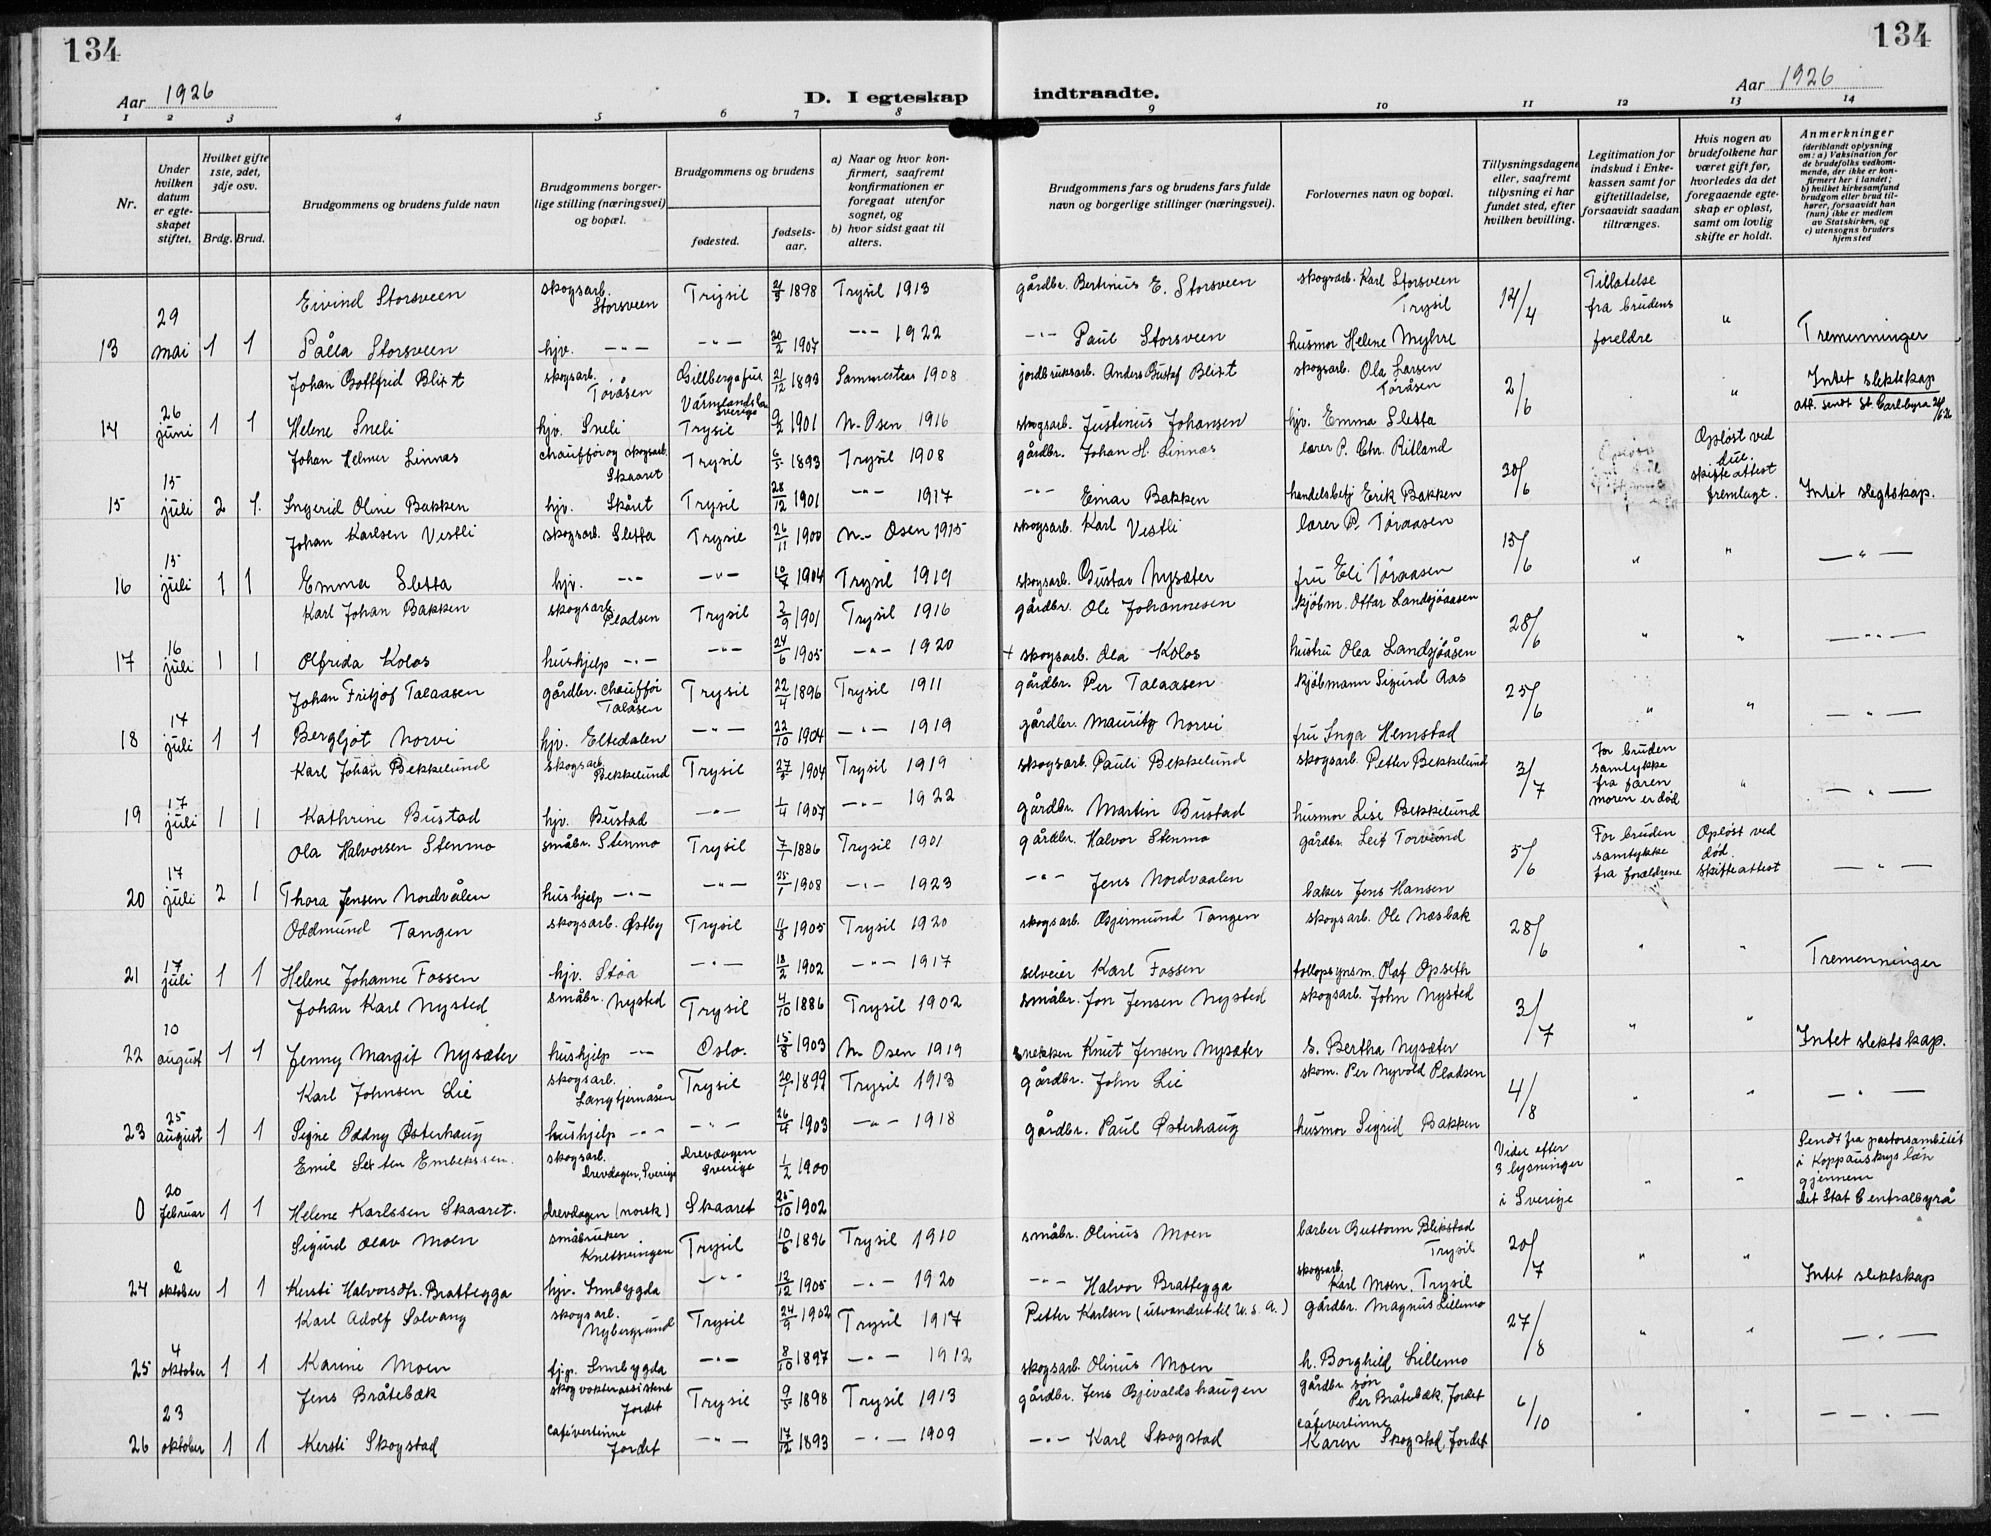 134
134
Aar 1926
D. I egteskap
indtraadte.
Aar 1926
1 2 3 4 5 6 7 8 9 10 11 12 13 14
Nr.
Under hvilken datum er egteskapet stiftet.
Hvilket gifte 1ste, 2det, 3dje osv.
Brdg. Brud.
Brudgommens og brudens fulde navn
Brudgommens borgerlige stilling (næringsvei) og bopæl.
Brudgommens og brudens
fødested.
fødselsaar.
a) Naar og hvor konfirmert, saafremt konfirmationen er foregaat utenfor sognet, og
b) hvor sidst gaat til alters.
Brudgommens fars og brudens fars fulde navn og borgerlige stillinger (næringsvei).
Forlovernes navn og bopæl.
Tillysningsdagene eller, saafremt tillysning ei har fundet sted, efter hvilken bevilling.
Legitimation for indskud i Enkekassen samt for giftetilladelse, forsaavidt saadan tiltrænges.
Hvis nogen av brudefolkene har været gift før, hvorledes da det foregaaende egteskap er opløst, samt om lovlig skifte er holdt.
Anmerkninger
(deriblandt oplysning om: a) Vaksination for de brudefolks vedkommende, der ikke er konfirmert her i landet;
b) hvilket kirkesamfund brudgom eller brud tilhører, forsaavidt han (hun) ikke er medlem av Statskirken, og
c) utensogns bruders hjemsted
Eivind Storsveen skogsarb. Storsveen Trysil 21/5 1898 Trysil 1913 gårdbr. Bertinus E. Storsveen skogsarb. Karl Storsveen Trysil 12/4 Tillatelse fra brudens foreldre "
13 29 mai 1 1 Pålla Storsveen hjv. -"- -"- 20/2 1907 -"- 1922 -"- Paul Storsveen husmor Helene Myhre Tremenninger
Johan Gottfrid Blixt skogsarb. Töråsen Gillberga Värmlands Sverige 21/12 1893 1908 jordbruksarb. Anders Gustaf Blixt skogsarb. Ola Larsen Töråsen 2/6 " Intet slektskap
14 26 juni 1 1 Helene Sneli hjv. Sneli Trysil 1901 N. Osen 1916 skogsarb. Justinius Johansen hjv. Emma Sletta
Johan Helmer Linnæs chauffør og skogsarb. Skaaret Trysil 6/5 1893 Trysil 1908 gårdbr. Johan H. Linnæs lærer P. Chr. Ritland 30/6 Opløst ved død. skifteattest fremlagt.
15 15 juli 2 1. Ingerid Oline Bakken hjv. Skåret Trysil 28/12 1901 -"- 1917 -"- Einar Bakken handelsbetj Erik Bakken Intet slegtskap.
Johan Karlsen Vestli skogsarb. Sletta Trysil 26/11 1900 N. Osen 1915 skogsarb. Karl Vestli lærer P. Töraasen 15/6 " " -"-
16 15 juli 1 1 Emma Sletta hjv. -"- -"- 10/7 1904 Trysil 1919 skogsarb. Gustav Nysæter fru Eli Töraasen
Karl Johan Bakken skogsarb. Pladsen Trysil 2/9 1901 Trysil 1916 gårdbr. Ole Johannesen kjöbm. Ottar Landsjöaasen 28/6 " " -"-
17 16 juli 1 1 Olfrida Kolos hushjelp -"- -"- 24/6 1905 -"- 1920 + skogsarb. Ola Kolos hustru Olea Landsjöåsen
Johan Fritjof Talaasen gårdbr. Chauffør Talåsen Trysil 22/4 1896 Trysil 1911 gårdbr. Per Talaasen kjöbmann Sigurd Aas 25/6 " " -"-
18 17 juli 1 1 Bergljot Norvi hjv. Eltedalen -"- 22/10 1904 -"- 1919 gårdbr. Mauritz Norvi fru Inga Hemstad
Karl Johan Bekkelund skogsarb. Bekkelund Trysil 27/5 1904 Trysil 1919 skogsarb. Pauli Bekkelund skogsarb. Petter Bekkelund 3/7 For bruden samtykke fra faren moren er död " -"-
19 17 juli 1 1 Kathrine Bustad hjv. Bustad -"- 1/4 1907 -"- 1922 gårdbr. Martin Bustad husmor Lise Bekkelund
Ola Halvorsen Stenmo småbr. Stenmo Trysil 7/1 1886 Trysil 1901 gårdbr. Halvor Stenmo gårdbr. Leif Torvund 5/6 For bruden samtykke fra forældrene Opløst ved død. Skifteattest -"-
20 17 juli 2 1 Thora Jensen Nordvålen hushjelp -"- -"- 25/1 1908 -"- 1923 -"- Jens Nordvaalen baker Jens Hansen
Oddmund Tangen skogsarb. Østby Trysil 11/8 1905 Trysil 1920 skogsarb. Gjermund Tangen skogsarb. Ole Næsbak 28/6 " "
21 17 juli 1 1 Helene Johanne Fossen hjv. Støa -"- 18/2 1902 -"- 1917 selveier Karl Fossen tollopsynsm. Olaf Opseth Tremenninger
Johan Karl Nysted småbr. Nysted Trysil 4/10 1886 Trysil 1902 småbr. Jon Jensen Nysted skogsarb. John Nysted 3/7 " "
22 10 august 1 1 Jenny Margit Nysæter hushjelp -"- Oslo. 15/8 1903 N. Osen 1919 snekker Knut Jensen Nysæter h. Bertha Nysæter Intet slektskap.
Karl Johnsen Lie skogsarb. Langtjernåsen Trysil 20/1 1899 Trysil 1913 gårdbr. John Lie skom. Per Nyvold Pladsen 4/8 " " -"-
23 25 august 1 1 Signe Oddny Østerhaug hushjelp -"- -"- 26/4 1903 -"- 1918 gårdbr. Paul Østerhaug husmor Sigrid Bakken
Emil Embekssen. skogsarb. Drevdagen, Sverige Drevdagen Sverige 1/2 1900 Viden efter 3 lysninger i Sverige " " Sendt fra pastorsambetet i Kopparbergs län gjennem det Stat Centralbyrå
0 20 februar 1 1 Helene Karlssen Skaaret. Drevdagen (norsk) Skaaret 25/10 1902
Sigurd Olav Moen småbruker Knettsvingen Trysil 10/6 1896 Trysil 1910 småbr. Olinus Moen barber Guttorm Blikstad Trysil 20/7 " "
24 2 oktober 1 1 Kersti Halvorsdtr. Brattegga hjv. Innbygda -"- 12/12 1905 -"- 1920 -"- Halvor Brattegga skogsarb. Karl Moen, Trysil Intet slektskap
Karl Adolf Solvang skogsarb. Nybergsund Trysil 24/9 1902 Trysil 1917 Petter Karlsen (utvandret til U.S.A.) gårdbr. Magnus Lillemo 27/8 " " -"-
25 4 oktober 1 1 Karine Moen tjgp. Innbygda -"- 8/10 1897 -"- 1912 skogsarb. Olinus Moen h. Borghild Lillemo
Jens Bråtebæk skogvokterassistent Jordet Trysil 9/5 1898 Trysil 1913 gårdbr. Jens Gjevaldshaugen gårdbr. søn Per Bråtebæk, Jordet 6/10 " " -"-
26 23 oktober 1 1 Kersti Skogstad cafévertinne Jordet -"- 17/12 1893 -"- 1909 -"- Karl Skogstad cafévertinne Karen Skogstad, Jordet